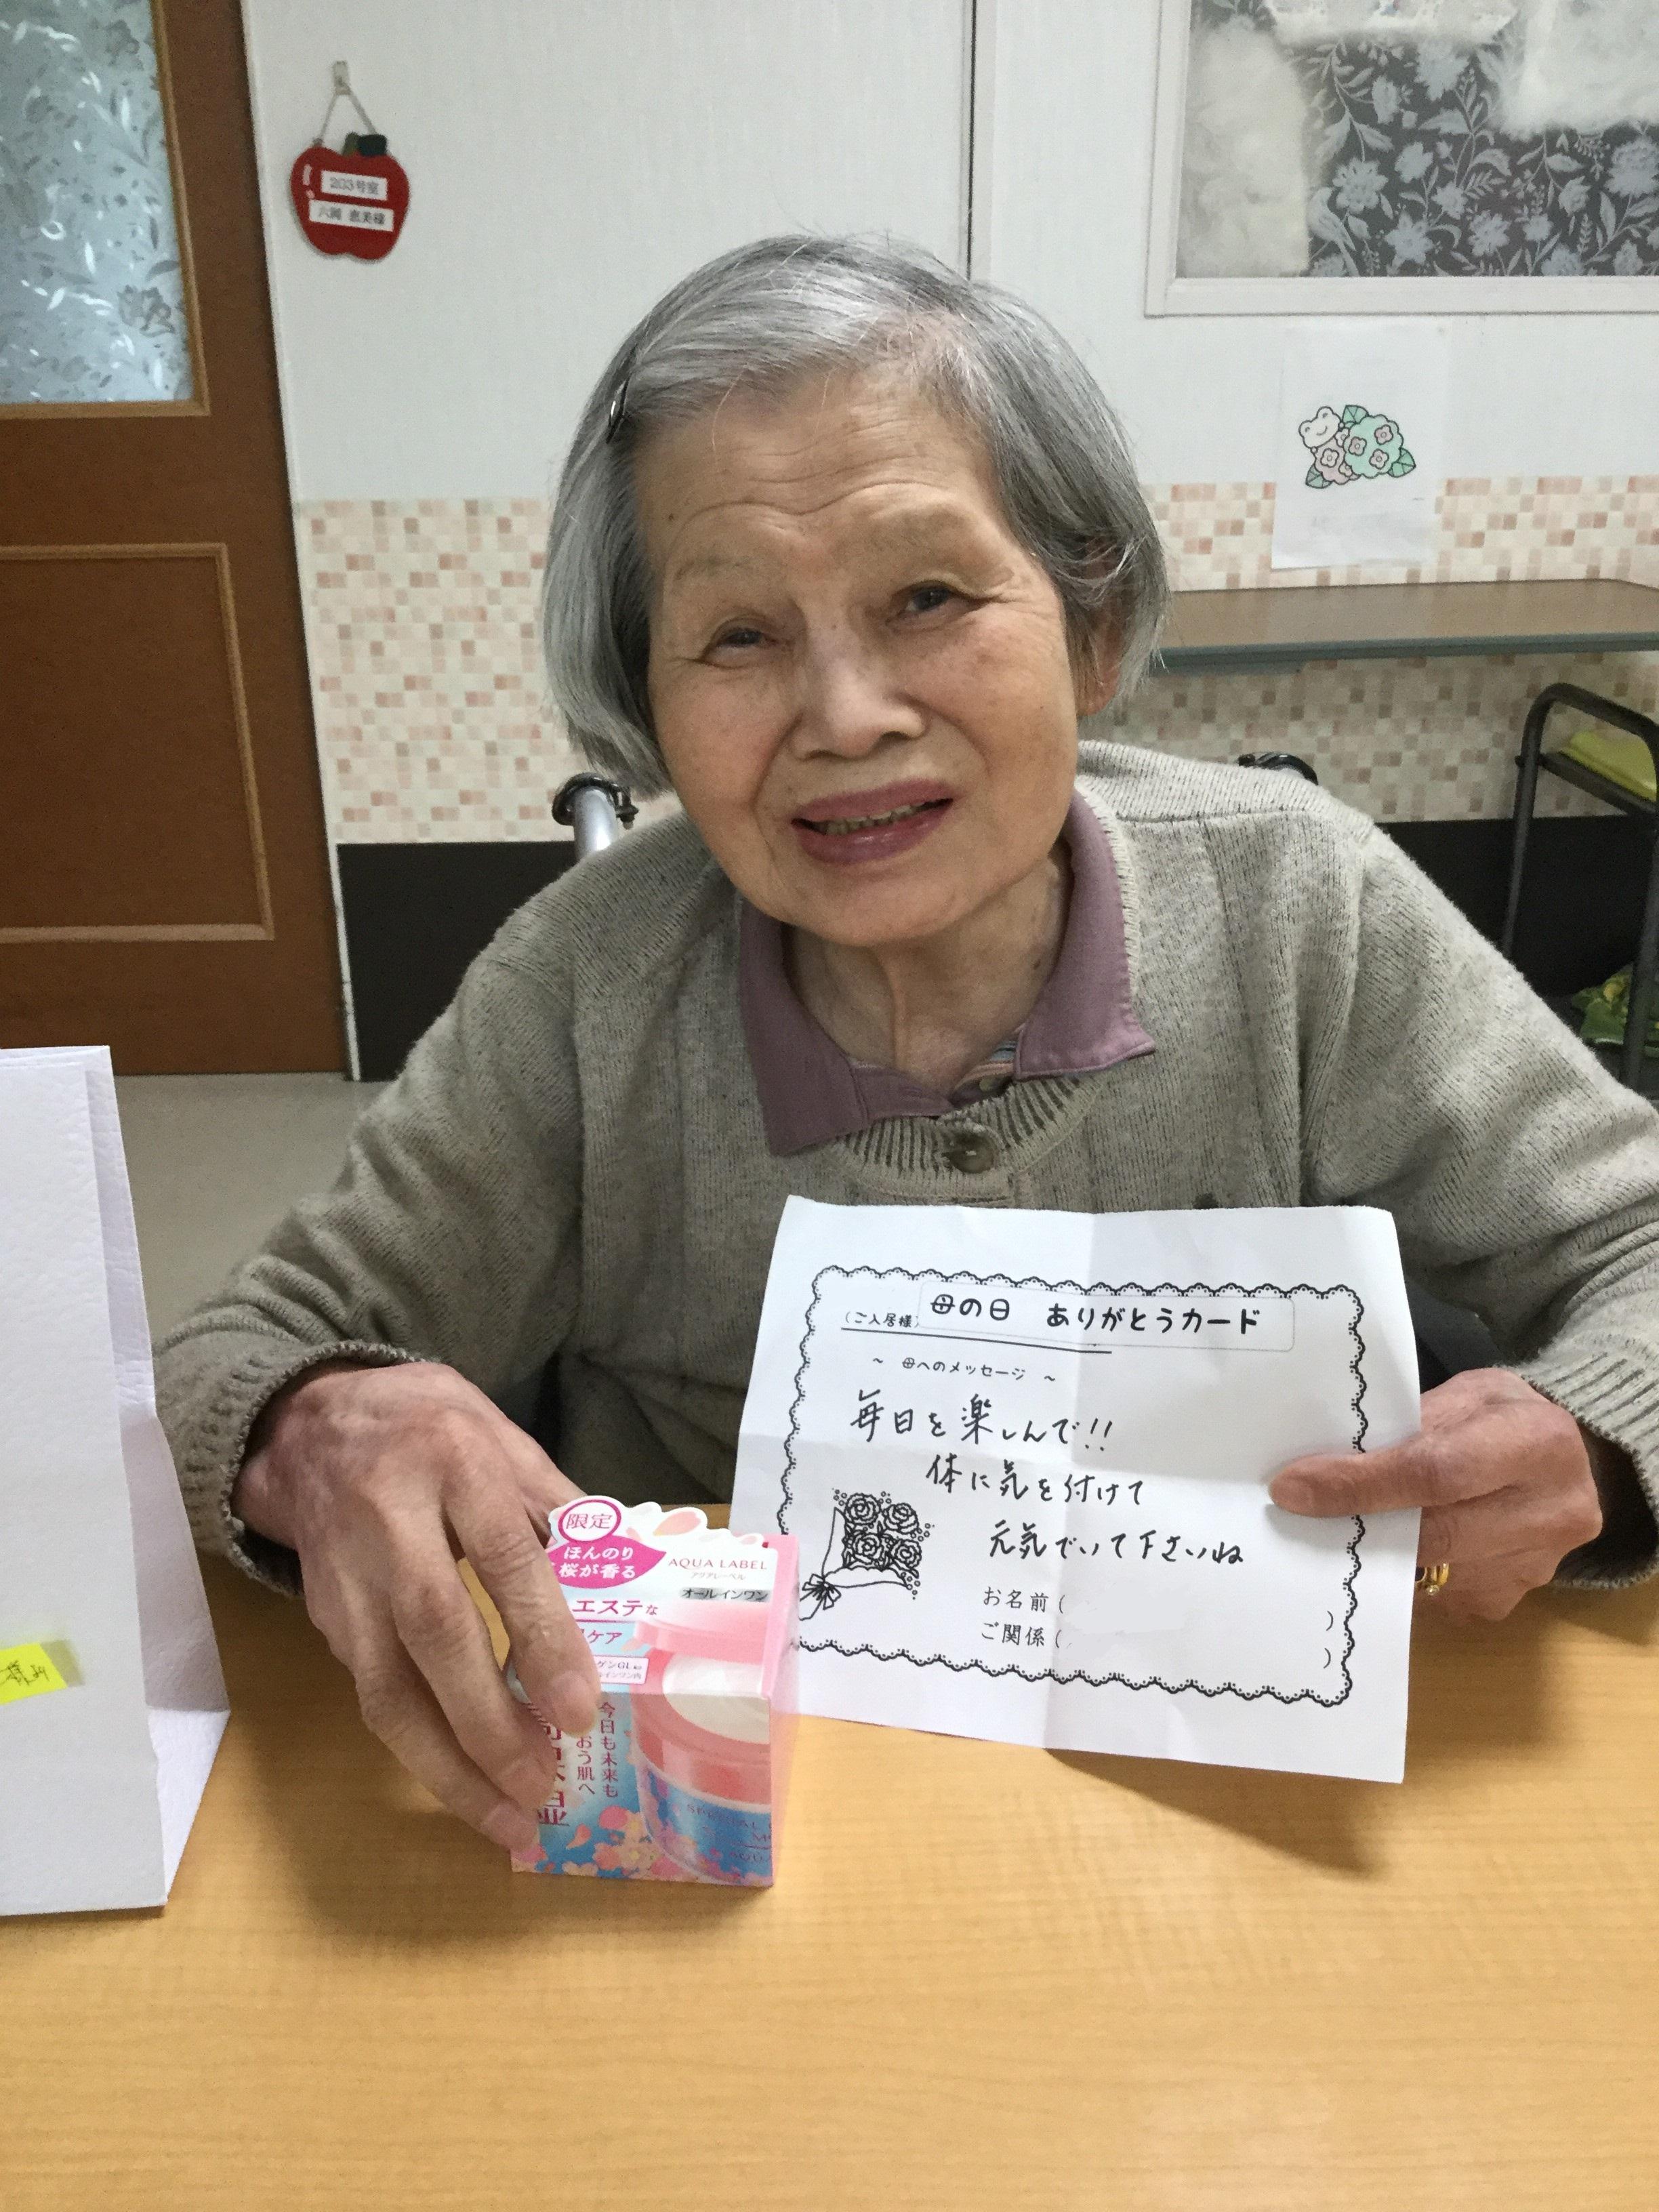 203号室
母の日 ありがとうカード
(ご入居様)
～ 母へのメッセージ ～
毎日を楽しんで!!
体に気を付けて
元気でいて下さいね
お名前( )
ご関係( )
限定
ほんのり
桜が香る
AQUA LABEL
アクアレーベル
オールインワン
エステな
ケア
今日も未来も
おう肌へ
SPECIAL